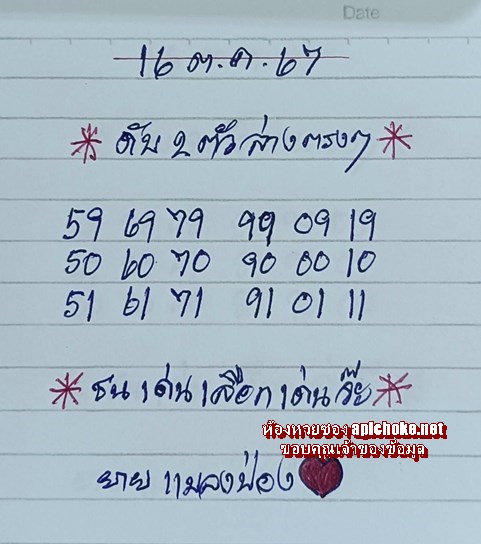 Date
16 ต.ค. 67
ดับ 2 ตัวล่างตรงๆ
59 69 79 99 09 19
50 60 70 90 00 10
51 61 71 91 01 11
ชนเด่นเลือกเด่น
ห้องหวยซอง apichoke.net
ขอบคุณเจ้าของข้อมูล
ยายแมลงป่อง